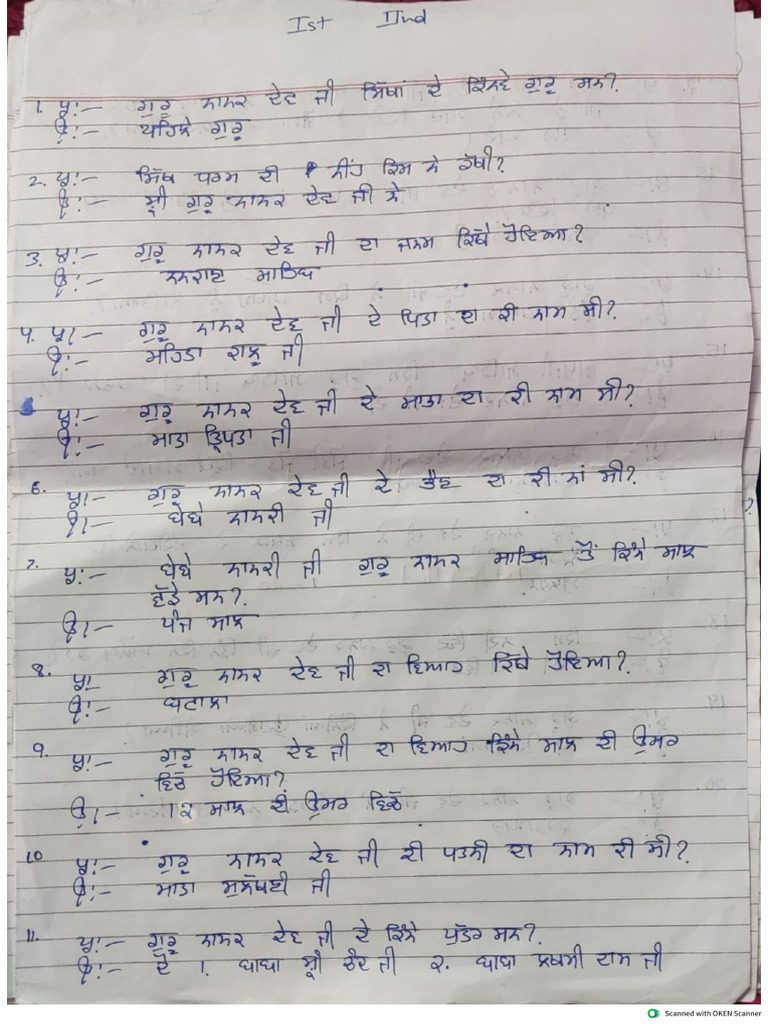 Ist IInd
1. ਪ੍ਰ:- ਗੁਰੂ ਨਾਨਕ ਦੇਵ ਜੀ ਸਿੱਖਾਂ ਦੇ ਕਿੰਨਵੇ ਗੁਰੂ ਸਨ?
ਉ:- ਪਹਿਲੇ ਗੁਰੂ
2. ਪ੍ਰ:- ਸਿੱਖ ਧਰਮ ਦੀ ਨੀਂਹ ਕਿਸ ਨੇ ਰੱਖੀ?
ਉ:- ਸ੍ਰੀ ਗੁਰੂ ਨਾਨਕ ਦੇਵ ਜੀ ਨੇ
3. ਪ੍ਰ:- ਗੁਰੂ ਨਾਨਕ ਦੇਵ ਜੀ ਦਾ ਜਨਮ ਕਿੱਥੇ ਹੋਇਆ?
ਉ:- ਨਨਕਾਣਾ ਸਾਹਿਬ
4. ਪ੍ਰ:- ਗੁਰੂ ਨਾਨਕ ਦੇਵ ਜੀ ਦੇ ਪਿਤਾ ਦਾ ਕੀ ਨਾਮ ਸੀ?
ਉ:- ਮਹਿਤਾ ਕਾਲੂ ਜੀ
ਪ੍ਰ:- ਗੁਰੂ ਨਾਨਕ ਦੇਵ ਜੀ ਦੇ ਮਾਤਾ ਦਾ ਕੀ ਨਾਮ ਸੀ?
ਉ:- ਮਾਤਾ ਤ੍ਰਿਪਤਾ ਜੀ
6. ਪ੍ਰ:- ਗੁਰੂ ਨਾਨਕ ਦੇਵ ਜੀ ਦੇ ਭੈਣ ਦਾ ਕੀ ਨਾਂ ਸੀ?
ਉ:- ਬੇਬੇ ਨਾਨਕੀ ਜੀ
7. ਪ੍ਰ:- ਬੇਬੇ ਨਾਨਕੀ ਜੀ ਗੁਰੂ ਨਾਨਕ ਸਾਹਿਬ ਤੋਂ ਕਿੰਨੇ ਸਾਲ
ਵੱਡੇ ਸਨ?
ਉ:- ਪੰਜ ਸਾਲ
8. ਪ੍ਰ:- ਗੁਰੂ ਨਾਨਕ ਦੇਵ ਜੀ ਦਾ ਵਿਆਹ ਕਿੱਥੇ ਹੋਇਆ?
ਉ:- ਬਟਾਲਾ
9. ਪ੍ਰ:- ਗੁਰੂ ਨਾਨਕ ਦੇਵ ਜੀ ਦਾ ਵਿਆਹ ਕਿੰਨੇ ਸਾਲ ਦੀ ਉਮਰ
ਵਿਚ ਹੋਇਆ?
ਉ:- 1੨ ਸਾਲ ਦੀ ਉਮਰ ਵਿਚ
10 ਪ੍ਰ:- ਗੁਰੂ ਨਾਨਕ ਦੇਵ ਜੀ ਦੀ ਪਤਨੀ ਦਾ ਨਾਮ ਕੀ ਸੀ?
ਉ:- ਮਾਤਾ ਸੁਲੱਖਣੀ ਜੀ
11. ਪ੍ਰ:- ਗੁਰੂ ਨਾਨਕ ਦੇਵ ਜੀ ਦੇ ਕਿੰਨੇ ਪੁੱਤਰ ਸਨ?
ਉ:- ਦੋ 1. ਬਾਬਾ ਸ੍ਰੀ ਚੰਦ ਜੀ ੨. ਬਾਬਾ ਲਖਮੀ ਦਾਸ ਜੀ
Scanned with OKEN Scanner